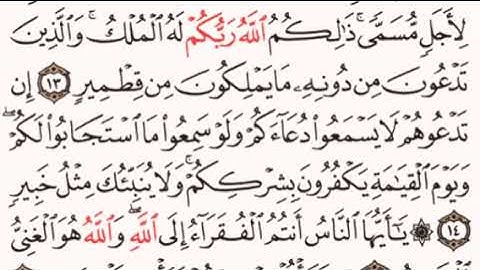 لِأَجَلٖ مُّسَمّٗىۚ ذَٰلِكُمُ ٱللَّهُ رَبُّكُمۡ لَهُ ٱلۡمُلۡكُۚ وَٱلَّذِينَ
تَدۡعُونَ مِن دُونِهِۦ مَا يَمۡلِكُونَ مِن قِطۡمِيرٍ ١٣ إِن
تَدۡعُوهُمۡ لَا يَسۡمَعُواْ دُعَآءَكُمۡ وَلَوۡ سَمِعُواْ مَا ٱسۡتَجَابُواْ لَكُمۡۖ
وَيَوۡمَ ٱلۡقِيَٰمَةِ يَكۡفُرُونَ بِشِرۡكِكُمۡۚ وَلَا يُنَبِّئُكَ مِثۡلُ خَبِيرٖ
١٤ ۞ يَٰٓأَيُّهَا ٱلنَّاسُ أَنتُمُ ٱلۡفُقَرَآءُ إِلَى ٱللَّهِۖ وَٱللَّهُ هُوَ ٱلۡغَنِيُّ